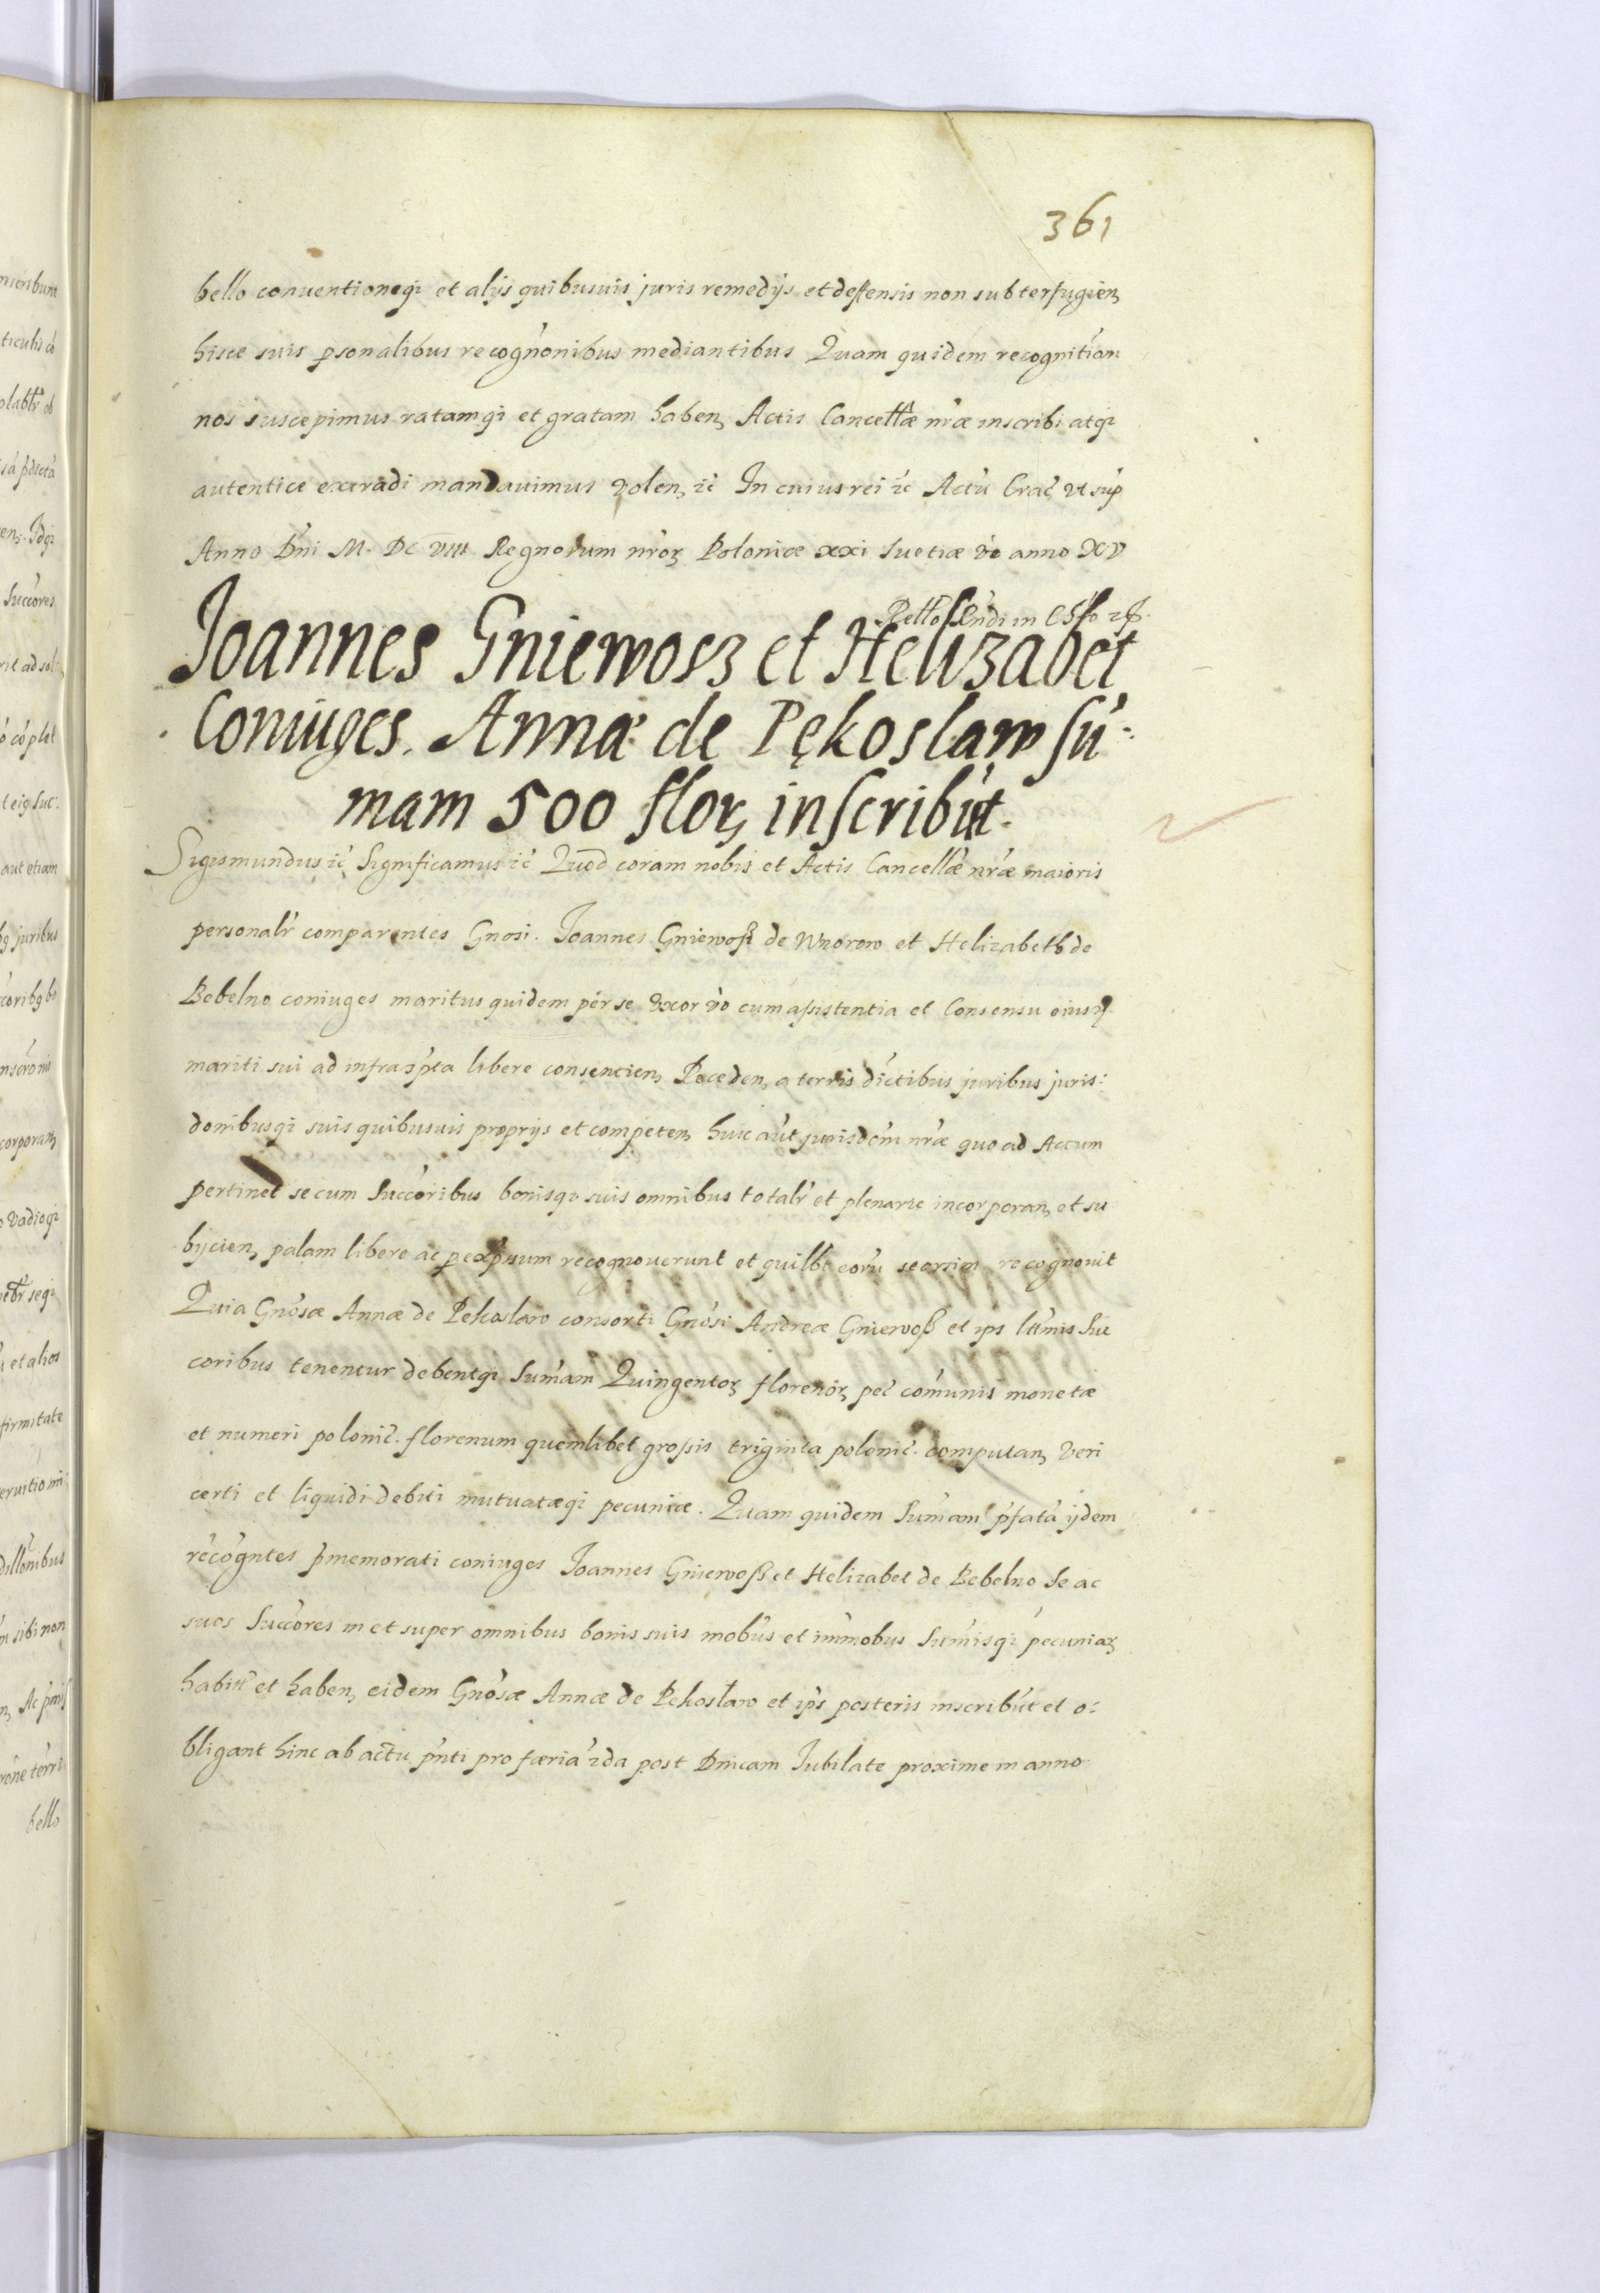 361
bello conuentioneqȝ et alijs quibusuis juris remedijs et deffensis non subterfugien
hisce suis psonalibus recognonibus mediantibus Quam quidem recognitiom
nos suscepimus ratamqȝ et gratam haben Actis Cancellæ nræ inscribi atqȝ
autentice extradi mandauimus volen ꝛc̃ In cuius rei ꝛc Actũ Crac̃ vt sup
Anno Dni M. DC VIII Regnorum nroꝝ Poloniæ xxi Suetiæ vo anno XV
in
Joannes Gniewosz et Helizabet
Coniuges. Annæ de Pękoslaw sũ-
mam 500 floꝝ inscribũt.
Sigismundus ꝛc̃ Significamus ꝛc̃ Quod coram nobis et Actis Cancellæ nræ maioris
personalr comparentes Gnosi. Joannes Gniewoß de Wnorow et Helizabeth de
Bebelno coniuges maritus quidem per se vxor vo cum assistentia et Consensu eiusd
mariti sui ad infraspta libere consencien Receden a terris dictibus juribus juris:
donibusqȝ suis quibusuis proprijs et competen huic aut jurisdom nræ quo ad Actum
pertinet se cum Succoribus bonisqȝ suis omnibus totalr et plenarie incorporan et su
bijcien palam libere ac p expssum recognouerunt et quilbt eorũ seorsim recognouit
Quia Gnosæ Annæ de Pekoslaw consorti Gnosi Andreæ Gniewoß et ips lttmis Suc
coribus tenentur debentqȝ Sumam Quingentoꝝ florenoꝝ pec̃ comunis monetæ
et numeri polonic̃. florenum quemlibet grossis triginta polonic̃. computan Veri
certi et liquidi debiti mutuatæqȝ pecuniæ. Quam quidem Sumam pfatã ijdem
recogntes pmemorati coniuges Joannes Gniewoß et Helizabet de Bebelno Se ac
suos Succores in et super omnibus bonis suis mobus et immobus Sumisqȝ pecuniaꝝ
habitt et haben eidem Gnosæ Annæ de Pekosław et ips posteris inscribũt et o:
bligant hinc ab actu pnti pro færia 2da post Dnicam Jubilate proxime in anno